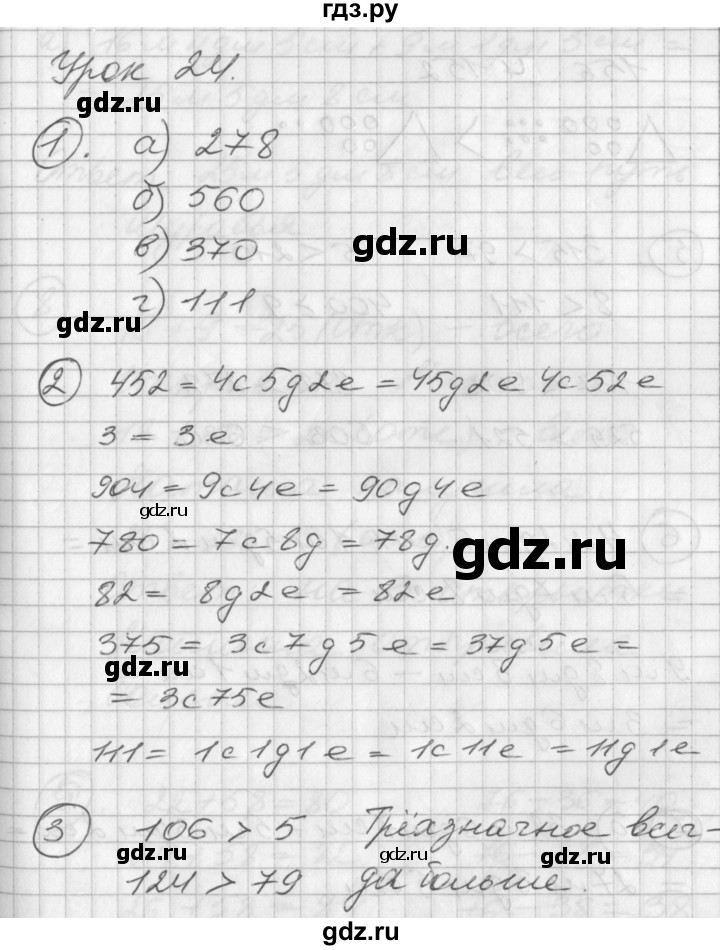 гдз.ру
Урок 24.
gdz.ru
1. а) 278
б) 560
в) 370
gdz.ru
г) 111
gdz.ru
2 452 = 4с5д2е = 45д2е 4с52е
3 = 3е
904 = 9с4е = 90д4е
gdz.ru
780 = 7с8д = 78д.
gdz.ru
82 = 8д2е = 82е
375 = 3с7д5е = 37д5е =
gdz.ru
= 3с75е
111 = 1с1д1е = 1с11е = 11д1е
3 106 > 5 Трёхзначное всег-
gdz.ru gdz.ru
124 > 79 да больше.
gdz.ru